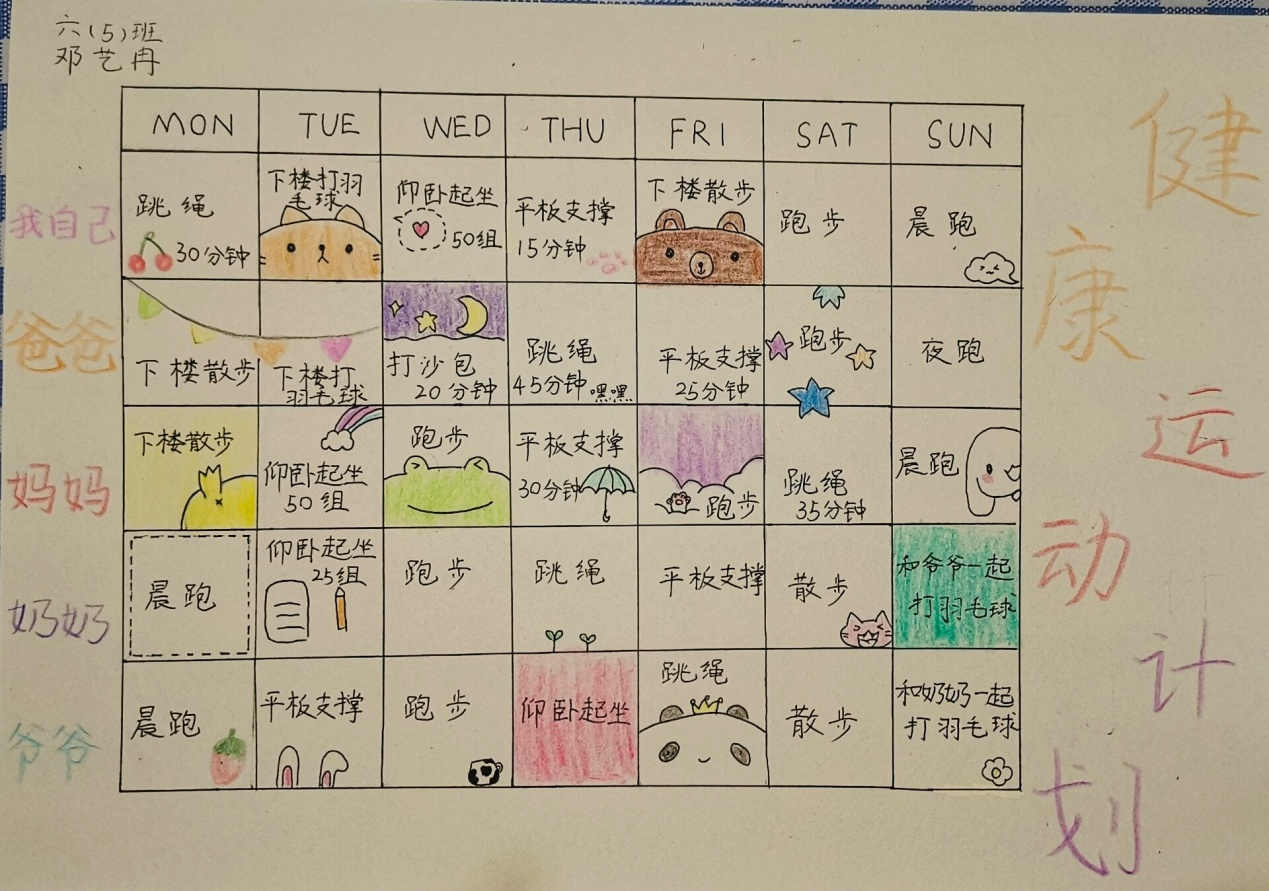 六(5)班
邓艺冉
健康运动计划
MON TUE WED THU FRI SAT SUN
我自己
跳绳
30分钟
下楼打羽
毛球
仰卧起坐
50组
平板支撑
15分钟
下楼散步
跑步
晨跑
爸爸
下楼散步
下楼打
羽毛球
打沙包
20分钟
跳绳
45分钟 嘿嘿
平板支撑
25分钟
跑步
夜跑
妈妈
下楼散步
仰卧起坐
50组
跑步
平板支撑
30分钟
跑步
跳绳
35分钟
晨跑
奶奶
晨跑
仰卧起坐
25组
跑步
跳绳
平板支撑
散步
和爷爷一起
打羽毛球
爷爷
晨跑
平板支撑
跑步
仰卧起坐
跳绳
散步
和奶奶一起
打羽毛球